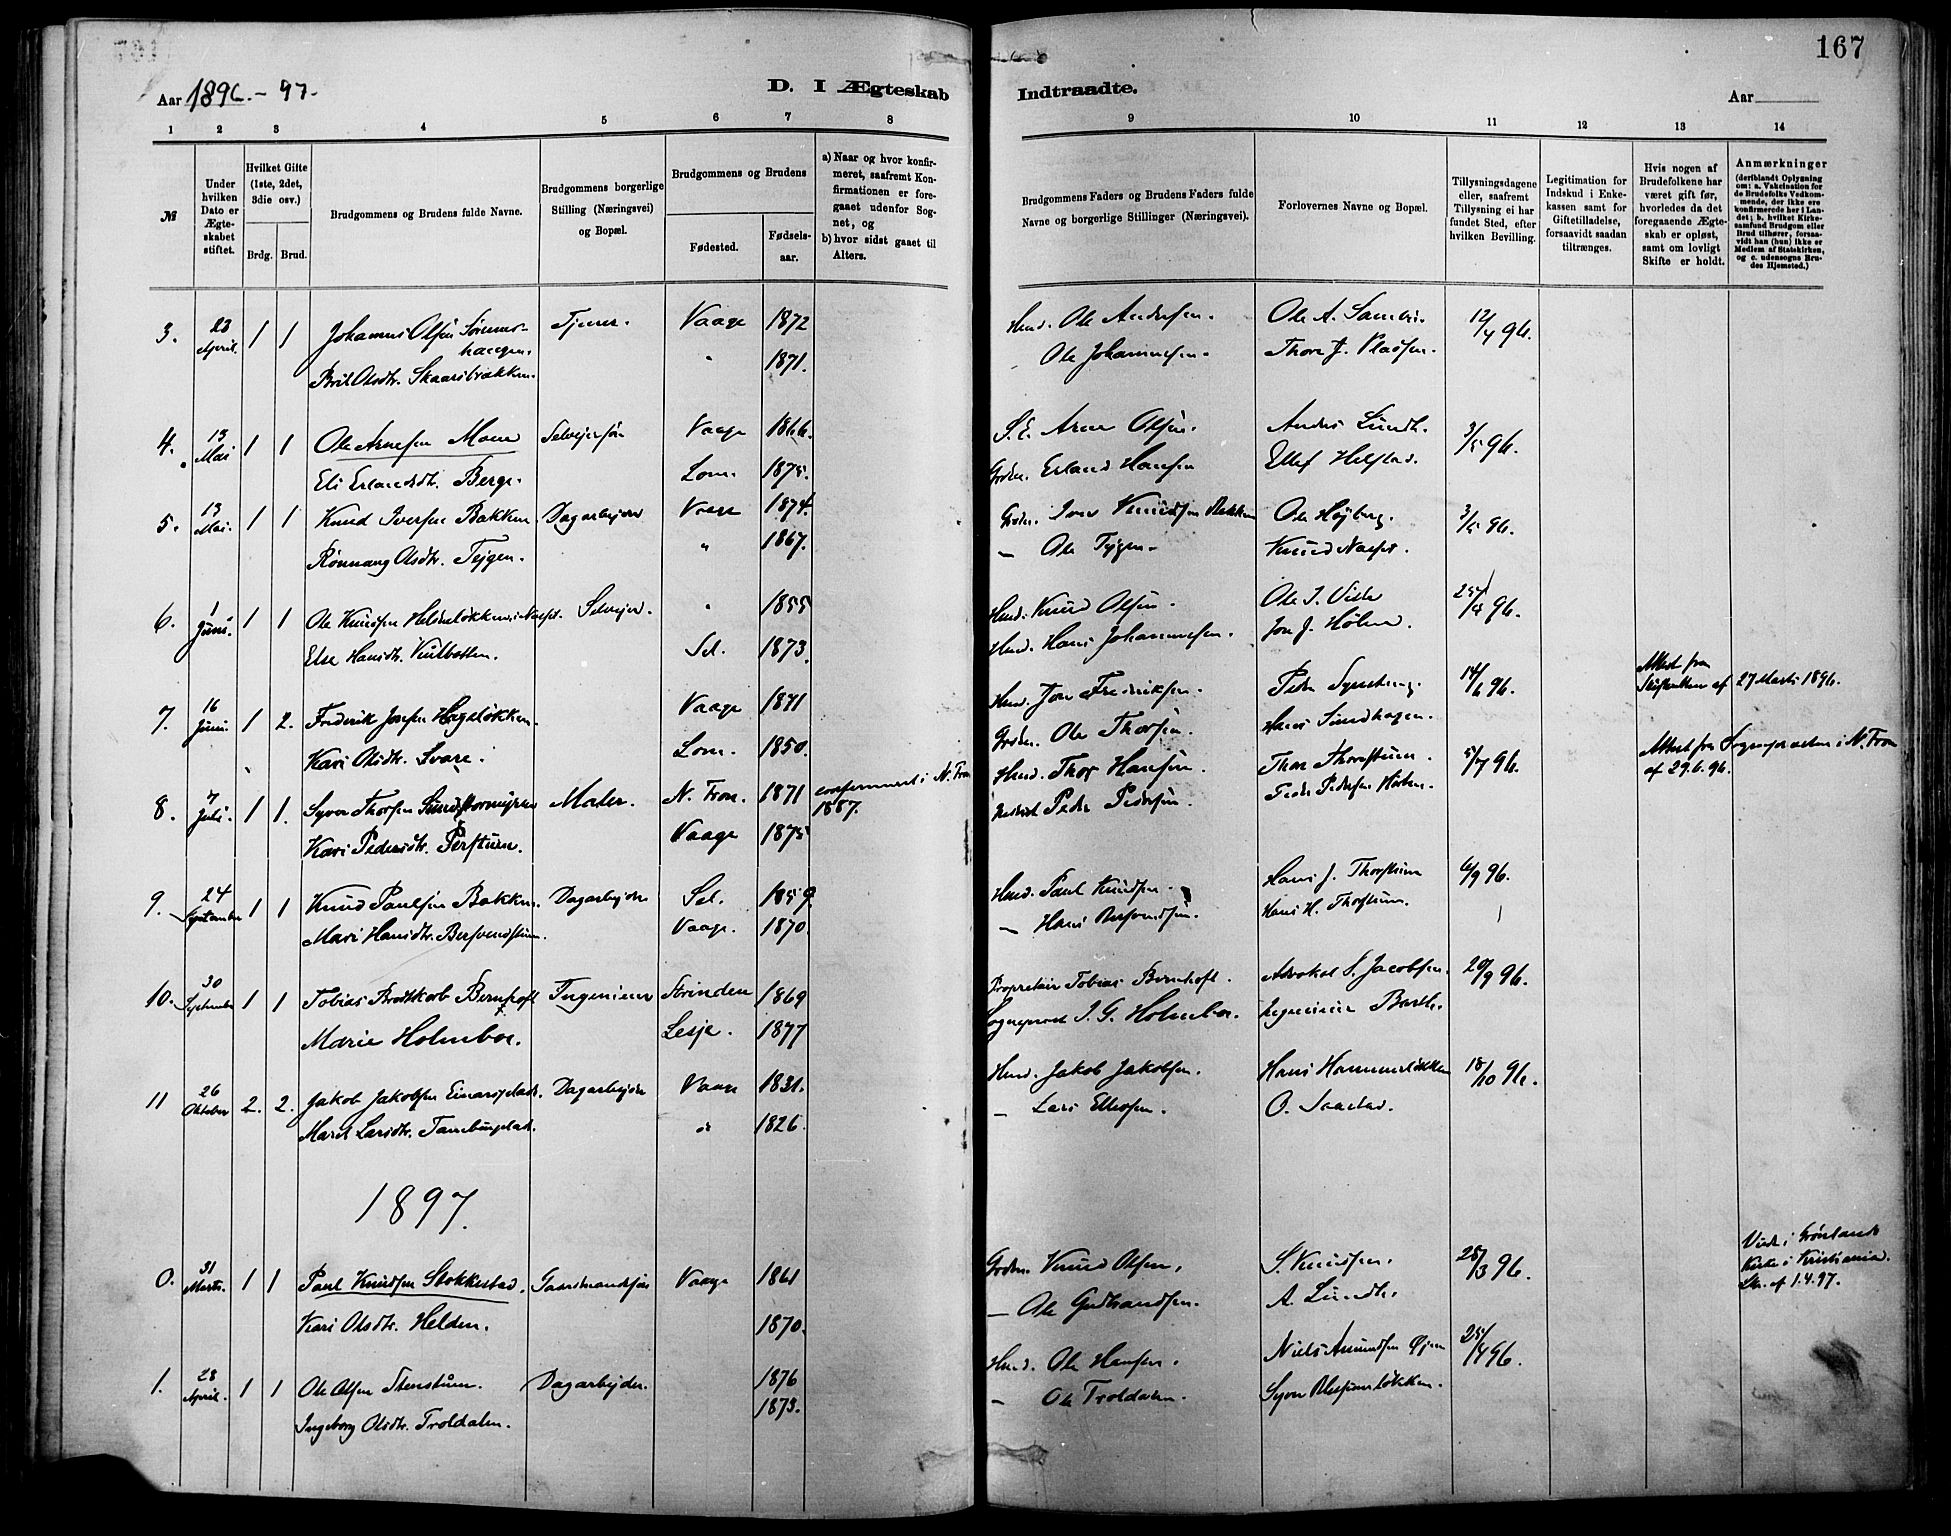 167
Aar 1896.-97.
D. I Ægteskab Indtraadte.
Aar
1 2 3 4 5 6 7 8 9 10 11 12 13 14
№
Under hvilken Dato er Ægteskabet stiftet.
Hvilket Gifte (1ste, 2det, 3die osv.)
Brdg. Brud.
Brudgommens og Brudens fulde Navne.
Brudgommens borgerlige Stilling (Næringsvei) og Bopæl.
Brudgommens og Brudens
Fødested. Fødselsaar.
a) Naar og hvor konfirmeret, saafremt Konfirmationen er foregaaet udenfor Sognet, og
b) hvor sidst gaaet til Alters.
Brudgommens Faders og Brudens Faders fulde Navne og borgerlige Stillinger (Næringsvei).
Forlovernes Navne og Bopæl.
Tillysningsdagene eller, saafremt Tillysning ei har fundet Sted, efter hvilken Bevilling.
Legitimation for Indskud i Enkekassen samt for Giftetilladelse, forsaavidt saadan tiltrænges.
Hvis nogen af Brudefolkene har været gift før, hvorledes da det foregaaende Ægteskab er opløst, samt om lovligt Skifte er holdt.
Anmærkninger
(deriblandt Oplysning om: a. Vakcination for de Brudefolks Vedkommende, der ikke ere konfirmerede her i Landet; b. hvilket Kirkesamfund Brudgom eller Brud tilhører, forsaavidt han (hun) ikke er Medlem af Statskirken, og c. udensogns Brudes Hjemsted.)
3. 23 April. 1 1 Johannes Olsen Sommerhaugen. Tjener. Vaage 1872 Hmd. Ole Andersen. Ole A. 12/4 96.
Brit Olsdtr. Skaarsbrækken. " 1871. Ole Johannesen. Thore J. Pladsen.
4. 13 Mai 1 1 Ole Arnesen Moen Selveiersøn Vaage 1866. S.E. Arne Olsen. Anders Lundh. 3/5 96.
Eli Erlandsdtr. Berge. Lom. 1875. Grdm. Erland Hansen Ellef Helstad.
5. 13 Mai. 1 1 Knud Iversen Bakken. Dagarbeider Vaage 1874. Grdm. Iver Knudsen Bakken Ole Højberg. 3/5 96.
Rønnaug Olsdtr. Tejgen. " 1867. – Ole Tejgen. Knud Næsset.
6. 1 Juni. 1 1 Ole Knudsen Selveier. " 1855 Hmd. Knud Olsen. Ole I. Visle 96.
Else Hansdtr. Sel. 1873. Hmd. Hans Johannesen. Jon J. Holen.
7. 16 Juni. 1 2. Frederik Jonsen Hageløkken. Vaage 1871 Hmd. Jon Frederiksen. Peder 14/6 96. Attest fra Skifteretten af 27 Marts 1896.
Kari Olsdtr. Svare. Lom. 1850. Grdm. Ole Thorsen. Hans Sundhagen.
8. 7 Juli. 1 1. Syver Thorsen Maler. N. Fron. 1871 confirmeret i N. Fron 1887. Hmd. Thor Hansen. Thor Thorstuen. 5/7 96. Attest fra Sognepræsten i N. Fron af 29.6.96.
Kari Pedersdtr. Perstuen. Vaage 1875 Peder Pedersen. Peder Pedersen Holen.
9. 24 September 1 1 Knud Paulsen Bakken. Dagarbeider Sel. 1859. Hmd. Paul Knudsen. Hans J. Thorstuen 6/9 96.
Mari Hansdtr. Bersvendstuen. Vaage. 1870. – Hans Bersvendsen. Hans H. Thorstuen.
10. 30 September 1 1 Tobias Brodtkorb Bernhoft Ingeniør Strinden 1869 Proprietær Tobias Bernhoft. Advokat S. Jacobsen. 20/9 96.
Marie Holmboe. Lesje. 1877 Sogneprest I. G. Holmboe. Ingeniør Barth.
11 26 Oktober 2. 2. Jakob Jakobsen Einarsplads. Dagarbeider Vaage 1831. Hmd. Jakob Jakobsen. Hans Hammerløkken 18/10 96.
Marit Larsdtr. " 1826. – Lars Ellefsen. O. Saastad.
1897.
0. 31 Marts. 1 1 Paul Knudsen Stokkestad. Gaardmandssøn Vaage 1861 Grdm. Knud Olsen. S. Knudsen. 28/3 96. Viede i Grønlands Kirke i Kristiania. Skr. af 1.4.97.
Kari Olsdtr. Helden. 1870. – Ole Gudbrandsen. A. Lundh.
1. 28 April. 1 1 Ole Olsen Stenstuen. Dagarbeider. 1876 Hmd. Ole Hansen. Niels Amundsen Øien 25/4 96.
Ingeborg Olsdtr. Troldalen. 1873. – Ole Troldalen. Syver